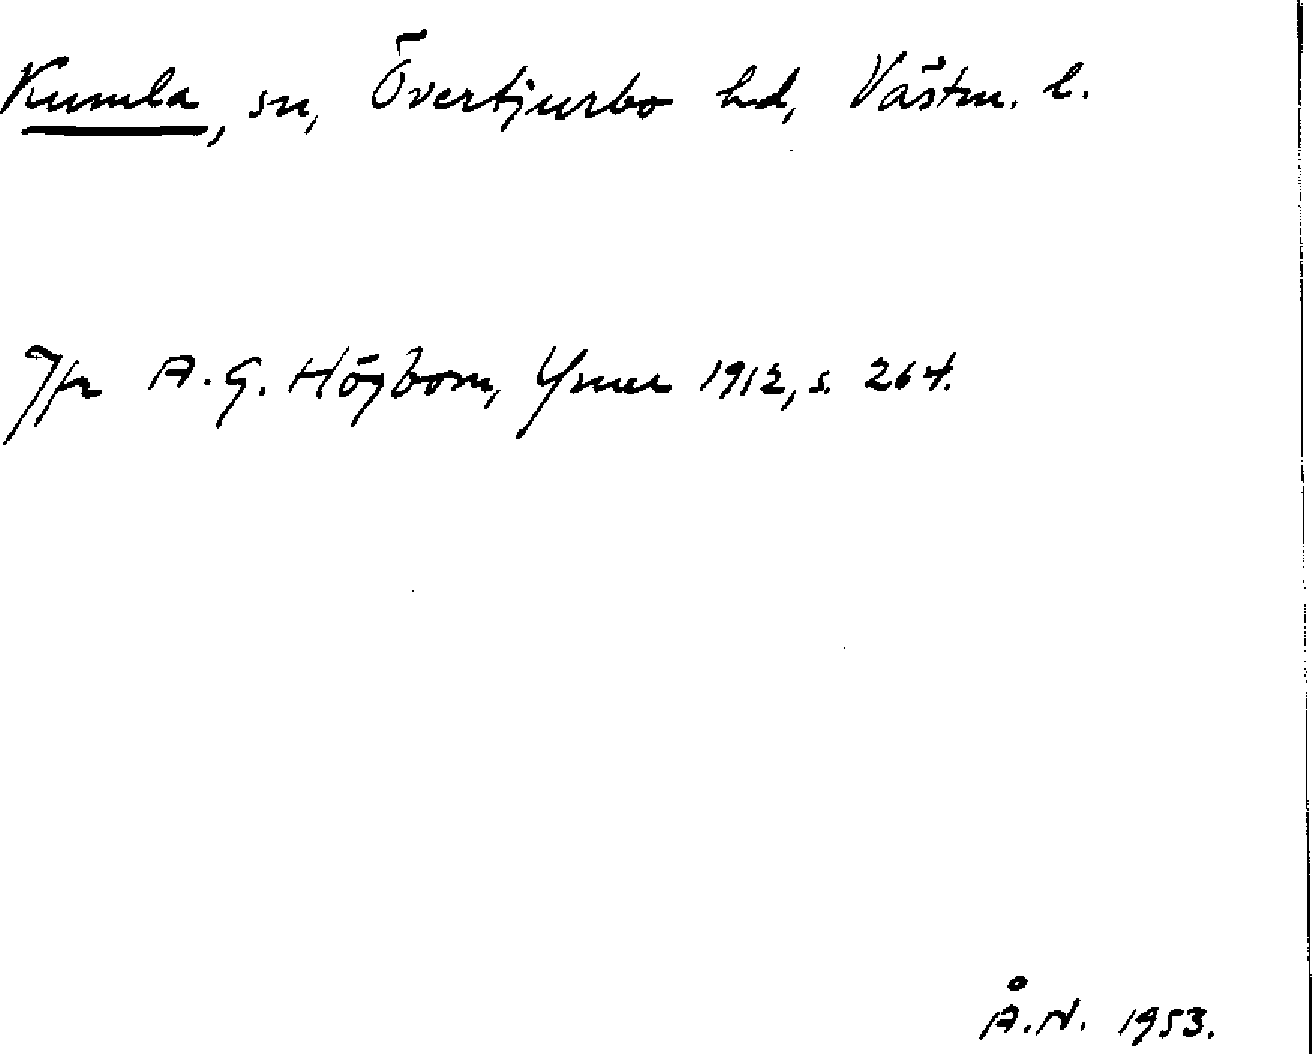 Kumla, sn, Övertjurbo hd, Västm. l.
Jfr A.G. Högbom, Ymer 1912, s. 264.
Å.N. 1953.